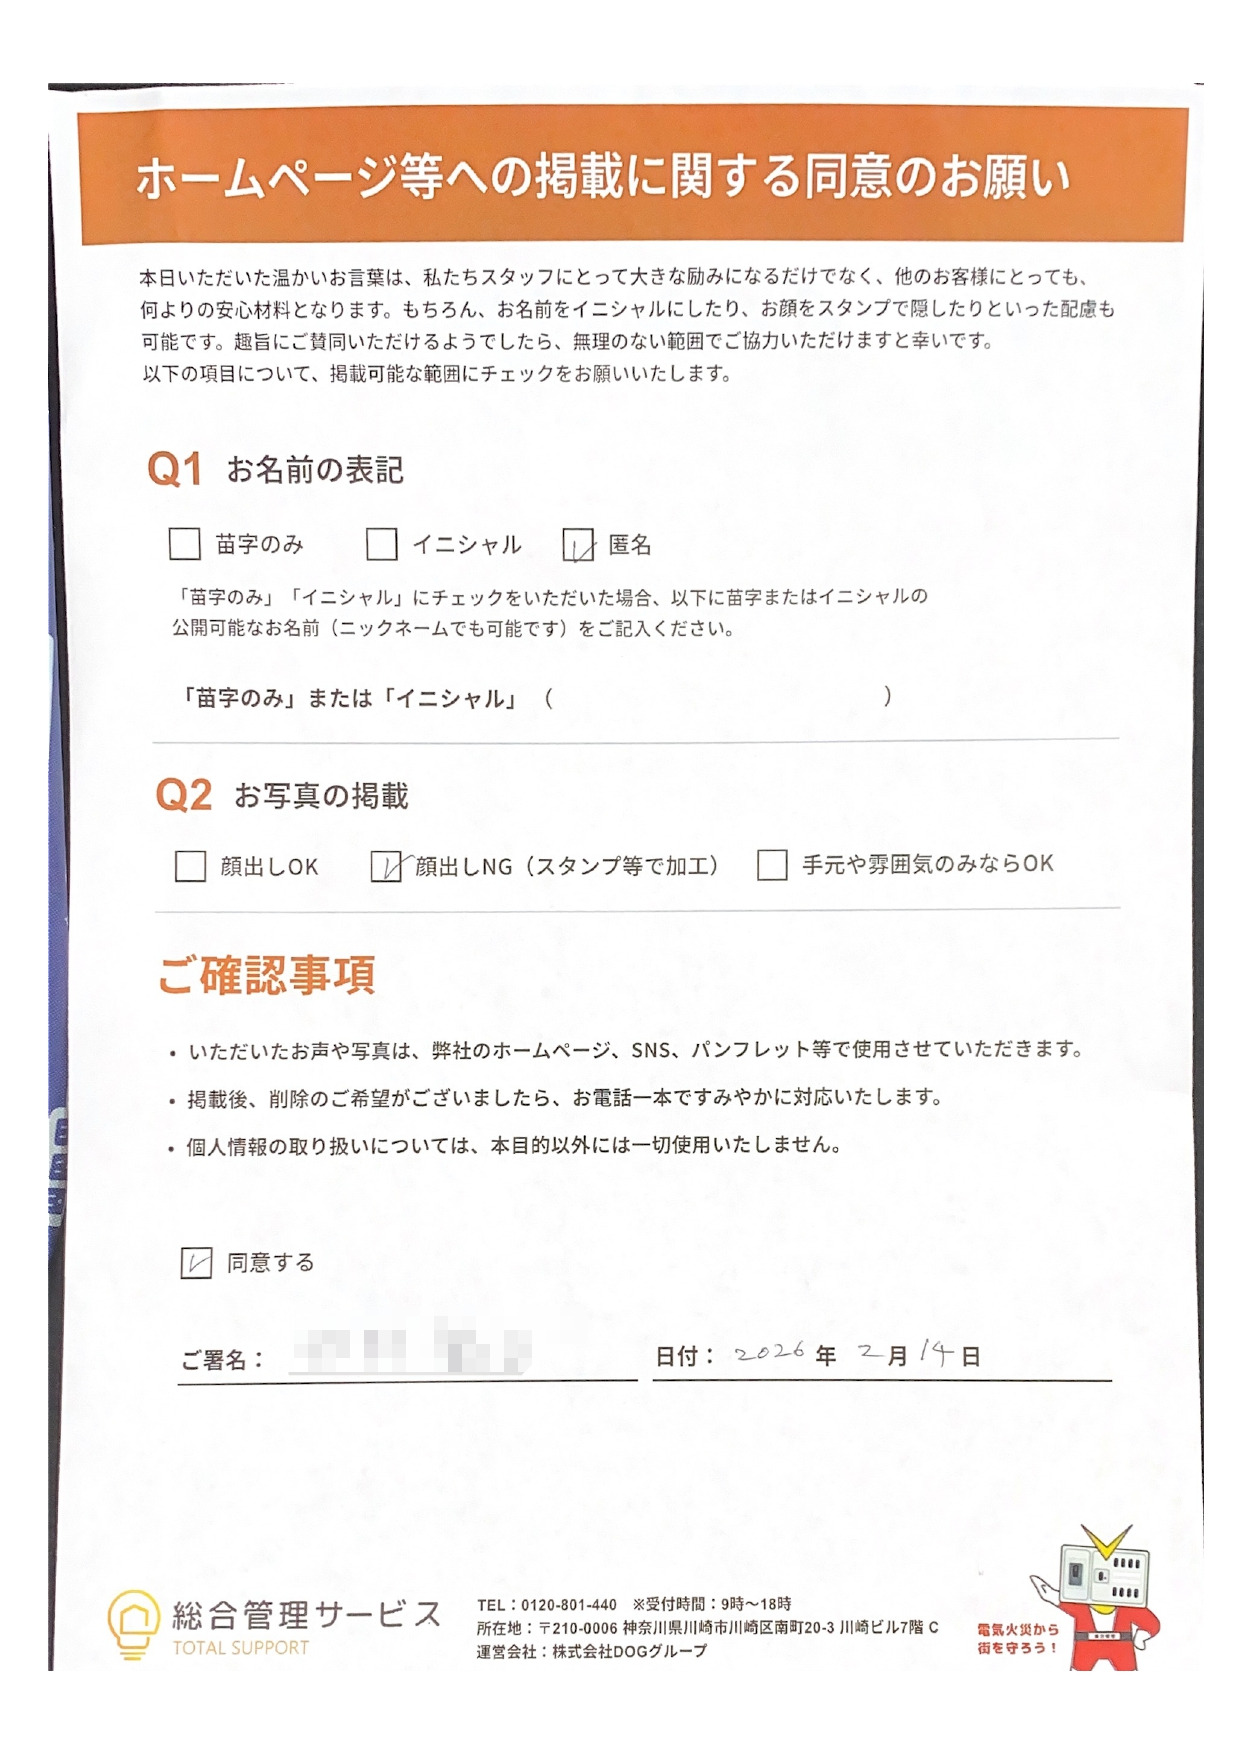 ホームページ等への掲載に関する同意のお願い
本日いただいた温かいお言葉は、私たちスタッフにとって大きな励みになるだけでなく、他のお客様にとっても、
何よりの安心材料となります。もちろん、お名前をイニシャルにしたり、お顔をスタンプで隠したりといった配慮も
可能です。趣旨にご賛同いただけるようでしたら、無理のない範囲でご協力いただけますと幸いです。
以下の項目について、掲載可能な範囲にチェックをお願いいたします。
Q1 お名前の表記
苗字のみ イニシャル 匿名
「苗字のみ」「イニシャル」にチェックをいただいた場合、以下に苗字またはイニシャルの
公開可能なお名前（ニックネームでも可能です）をご記入ください。
「苗字のみ」または「イニシャル」（ ）
Q2 お写真の掲載
顔出しOK 顔出しNG（スタンプ等で加工） 手元や雰囲気のみならOK
ご確認事項
・いただいたお声や写真は、弊社のホームページ、SNS、パンフレット等で使用させていただきます。
・掲載後、削除のご希望がございましたら、お電話一本ですみやかに対応いたします。
・個人情報の取り扱いについては、本目的以外には一切使用いたしません。
同意する
ご署名： 日付： 2026 年 2 月 14 日
総合管理サービス
TOTAL SUPPORT
TEL：0120-801-440 ※受付時間：9時〜18時
所在地：〒210-0006 神奈川県川崎市川崎区南町20-3 川崎ビル7階 C
運営会社：株式会社DOGグループ
電気火災から
街を守ろう！